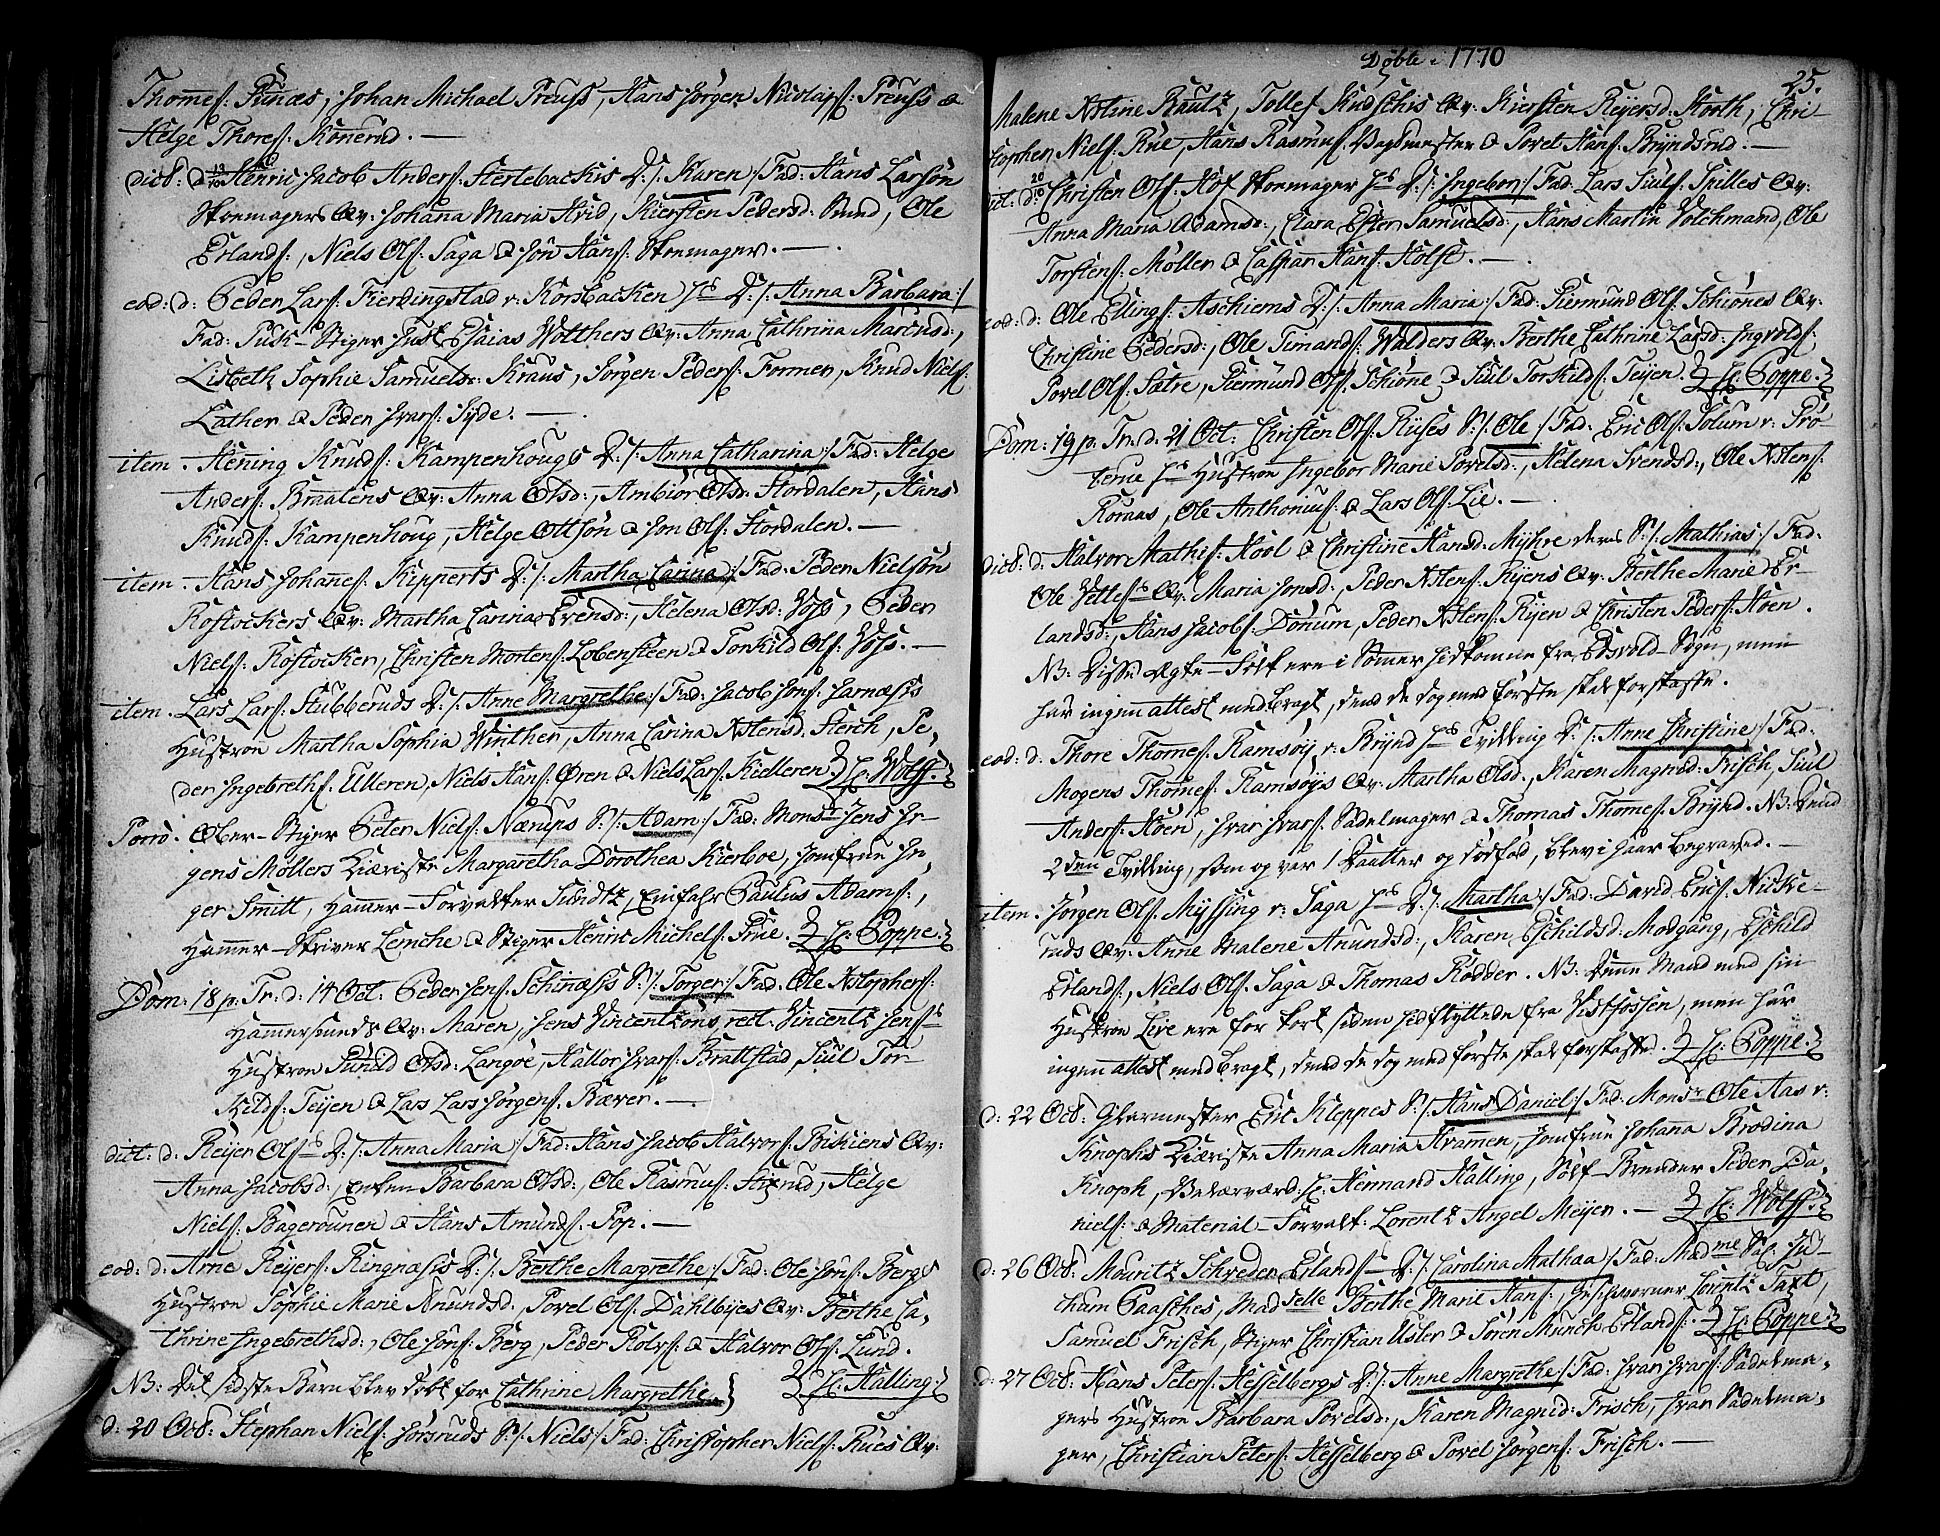 Thomeſ: Runæs, Johan Michael Preuſs, Hans Jörgen Nicolajſ: Preuſs &
Helge Thoreſ: Konerud. —
dict: d: 19/10 Henric Jacob Anderſ: Sterlebachis D: /: Karen /: Fad: Hans Larsön
Skoemagers Qv: Johana Maria Hvid, Kiersten Pedersd: Sund, Ole
Erlandſ:, Niels Olſ: Saga & Jön Hanſ: Skoemager. —
eod: d: Peder Larſ: Fierdingstad v: Korsbacken hs D: /: Anna Barbara :/
Fad: Puk-Stiger Just Esaias Wolthers Qv: Anna Cathrina Marensd:,
Lisbeth Sophie Samuelsd: Kraus, Jörgen Pederſ: Former, Knud Nielſ:
Lather & Peder Ivarſ: Syde. —
item. Hening Knudſ: Kampenhougs D: /: Anna Catharina :/ Fad: Helge
Anderſ: Braalens Qv: Anna Olsd:, Ambiör Olsd: Stordalen, Hans
Knudſ: Kampenhoug, Helge Ottsön & Jon Olſ: Stordalen. —
item. Hans Johaneſ: Kipperts D: /: Martha Carina :/ Fad: Peder Nielsön
Rostockers Qv: Martha Carina Evensd:, Helena Olsd: Voss, Peder
Nielſ: Rostocker, Christen Mortenſ: Lobensteen & Torkild Olſ: Voss. —
item. Lars Larſ: Stubberuds D: /: Anne Margrethe :/ Fad: Jacob Jonſ: Jarnæsis
Hustroe Martha Sophia Winther, Anna Carina Astensd: Sterch, Pe,
der Ingebrethſ: Ulleren, Niels Hanſ: Ören & Niels Larſ: Kielleren. H: Wolff.
Porro. Ober-Stiger Peter Nielſ: Nærups S: /: Adam :/ Fad: Monsr Jens Jr-
gens Möllers Kiæriste Margaretha Dorothea Kierboe, Jomfrue In,
ger Smitt, Hamer-Forvalter Lundtz, Einfahr Paulus Adamſ:,
Hamer-Skriver Lemche & Stiger Henric Michelſ: Prüe. H: Poppe.
Dom: 18 p. Tr: d: 14 Oct: Peder Jenſ: Schinæsis S: /: Torger :/ Fad: Ole Xstopherſ:
Hamersmeds Qv: Maren, Jens Vincentzöns rect: Vincentz Jenſs
Hustroe Gunild Olsd: Langöe, Hallor Ivarſ: Brattstad, Juul Tor-
kildſ: Teijen & Lars Lars Jörgenſ: Bæver. —
dict: d: Reijer Olſs D: /: Anna Maria :/ Fad: Hans Jacob Halvorſ: Bisniens Qv:
Anna Jacobsd:, Enken Barbara Olsd:, Ole Rasmuſ:, Helge
Nielſ: Bagerounen & Hans Amundſ: Fop. —
eod: d: Arne Reijerſ: Ringnæsis D: /: Berthe Margrethe :/ Fad: Ole Jonſ: Bergs
Hustroe Sophie Marie Anundsd:, Povel Olſ: Dahlbyes Qv: Berthe Ca,
thrine Ingebrethsd:, Ole Jonſ: Berg, Peder Rolvſ: & Halvor Olſ: Lund.
NB: Det sidste Barn blev döbt for Cathrine Margrethe. H: Halling.
d: 20 Oct: Stephan Nielſ: Jörsruds S: /: Niels /: Fad: Christopher Nielſ: Rues Qv:
Döbte. 1770
25.
Malene Astine Rautz, Tollef Knudschis Qv: Kiersten Reijersd: Korth, Chri-
stopher Nielſ: Rue, Hans Rasmuſ: Bagmester & Povel Hanſ: Bryndsrud. —
dict: d: 20/10 Christen Olſ: Hof Skoemager hs D: /: Ingebor :/ Fad: Lars Juulſ: Spilles Qv:
Anna Maria Adamsd:, Clara Ester Samuelsd:, Hans Martin Volchmand, Ole
Torstenſ: Möller & Caspar Hanſ: Holst. —
eod: d: Ole Ellingſ: Aschiems D: /: Anna Maria :/ Fad: Giermund Olſ: Schiönes Qv:
Christine Pedersd:, Ole Timandſ: Walders Qv: Berthe Cathrine Larsd: Ingvoldſ:
Povel Olſ: Sætre, Giermund Olſ: Schiöne & Juul Torkildſ: Teijen. H: Poppe.
Dom: 19 p. Tr: d: 21 Oct: Christen Olſ: Ruses S: /: Ole :/ Fad: Eric Olſ: Solum v: Frö-
terue hs Hustroe Ingebor Marie Povelsd:, Helena Svendsd:, Ole Astenſ:
Koraas, Ole Anthoniuſ: & Lars Olſ: Lie. —
dict: d: Halvor Mathiſ: Hool & Christine Hansd: Myhre deres S: /: Mathias :/ Fad:
Ole Vetleſs Qv: Maria Jonsd:, Peder Astenſ: Ryens Qv: Berthe Marie Er-
landsd:, Hans Jacobſ: Dönum, Peder Astenſ: Ryen & Christen Pederſ: Hoen.
NB: Disse Ægte-Folk ere i Somer hidkomne fra Edsvold-Sogn, men
har ingen attest medbragt, dend de dog med förste skal forskaffe.
eod: d: Thore Thomeſ: Ramsöy v: Brynd hs Tvilling D: /: Anne Christine :/ Fad:
Mogens Thomeſ: Ramsöys Qv: Martha Olsd:, Karen Magnid: Frisch, Juul
Anderſ: Hoen, Ivar Ivarſ: Sadelmager & Thomas Thomeſ: Brynd. NB: Dend
2den Tvilling, som og var 1 Daatter og dödföd, blev i Gaar begraved. —
item. Jörgen Olſ: Myssing v: Saga hs D: /: Martha :/ Fad: David Ericſ: Nicke-
ruds Qv: Anne Malene Anundsd:, Karen Eschildsd: Modgang, Eschild
Erlandſ:, Niels Olſ: Saga & Thomas Rödder. NB: Dene Mand med sin
Hustroe Live ere for kort siden hidflyttede fra Vestfossen, men har
ingen attest medbragt, dend de dog med förste skal forskaffe. H: Poppe.
d: 22 Oct: Glarmester Eric Kleppes S: /: Hans Daniel :/ Fad: Monsr Ole Aas v:
Knophs Kiæriste Anna Maria Kramer, Jomfrue Johana Brodina
Knoph, Velærværd: H: Hennand Halling, Sölf-Brender Peder Da,
nielſ: & Material-Forvalt: Lorentz Angel Meijer. — H: Wolff.
d: 26 Oct: Mouritz Schreder Erlandſs D: /: Carolina Mathaa :/ Fad: Madme Sal: Jo-
chum Paasches, Madselle Berthe Marie Hanſ:, Geschworner Lorentz Taxt,
Samuel Frisch, Stiger Christian Usler & Sören Munch Erlandſ: H: Poppe.
d: 27 Oct: Hans Peterſ: Hesselbergs D: /: Anne Margrethe :/ Fad: Ivar Ivarſ: Sadelma,
gers Hustroe Barbara Povelsd:, Karen Magnid: Frisch, Ivar Sadelma,
ger, Christian Peterſ: Hesselberg & Povel Jörgenſ: Frisch. —